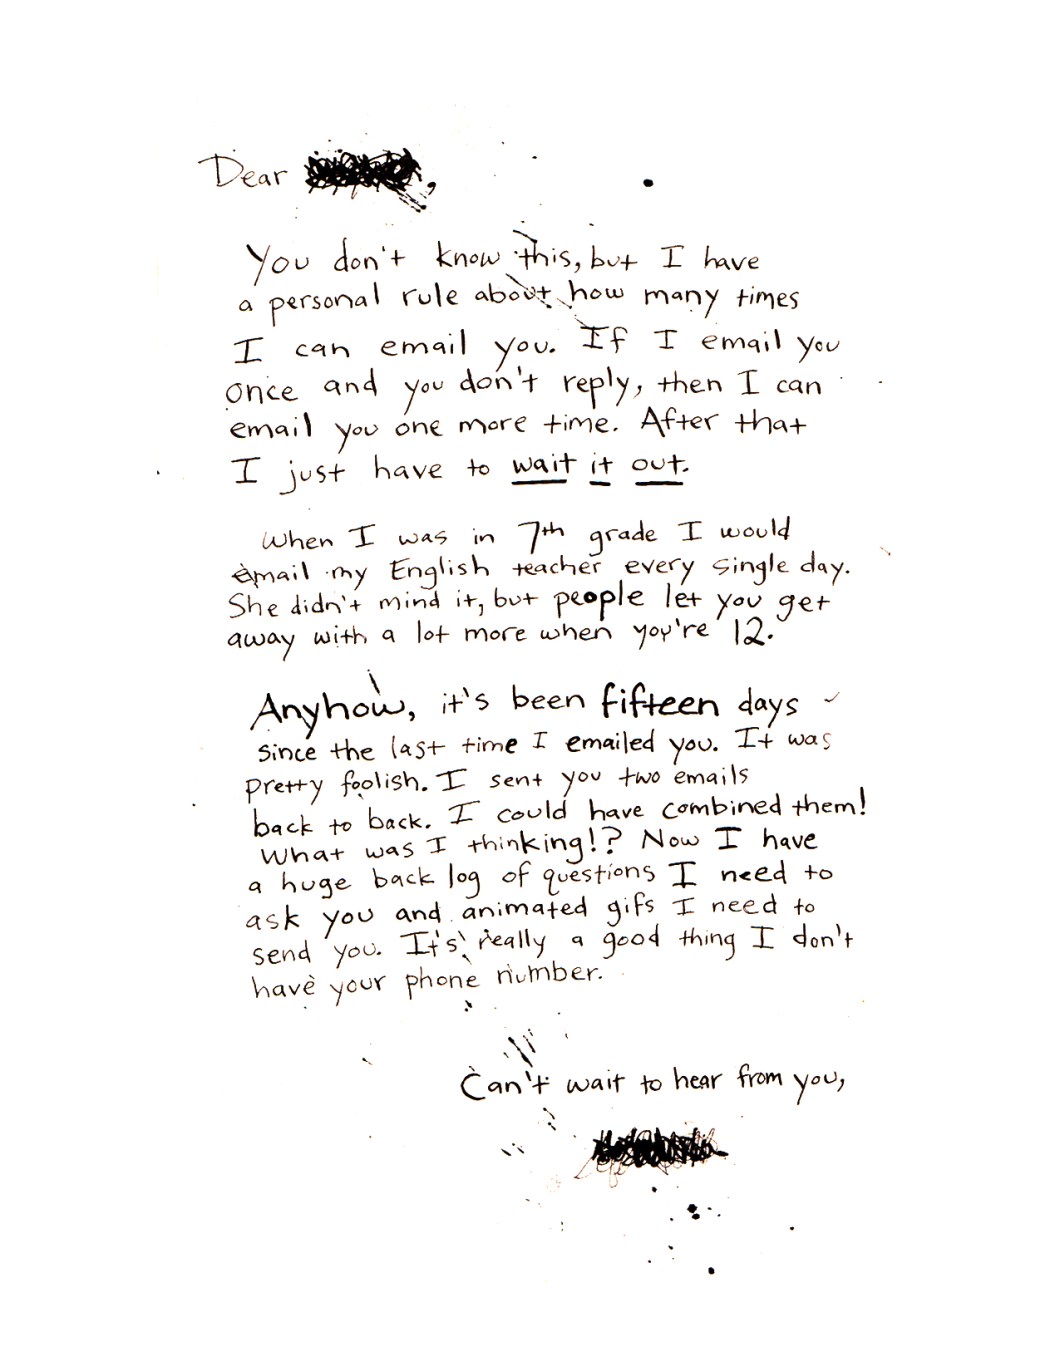 Dear ,
You don't know this, but I have
a personal rule about how many times
I can email you. If I email you
once and you don't reply, then I can
email you one more time. After that
I just have to wait it out.
When I was in 7th grade I would
email my English teacher every single day.
She didn't mind it, but people let you get
away with a lot more when you're 12.
Anyhow, it's been fifteen days
since the last time I emailed you. It was
pretty foolish. I sent you two emails
back to back. I could have combined them!
What was I thinking!? Now I have
a huge back log of questions I need to
ask you and animated gifs I need to
send you. It's really a good thing I don't
have your phone number.
Can't wait to hear from you,